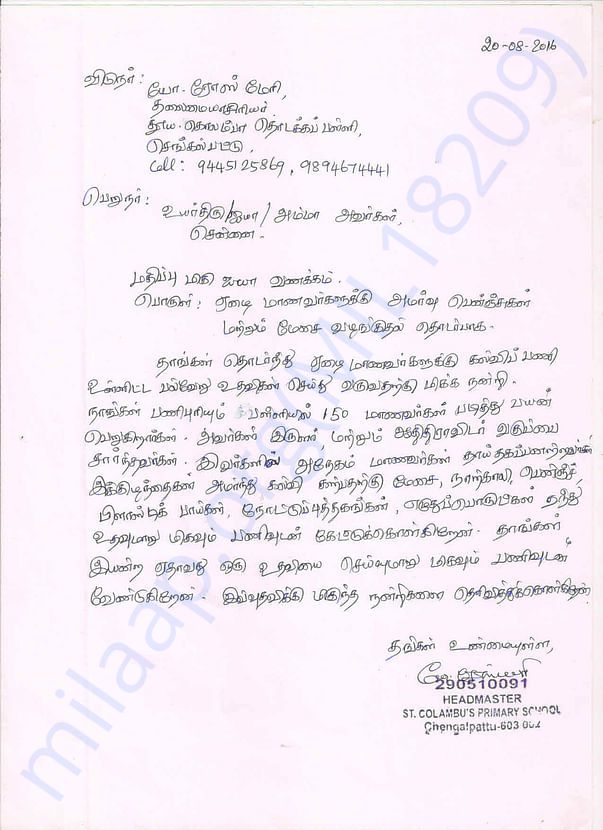 20-08-2016
விடுநர் :
யோ. ரோஸ் மேரி,
தலைமையாசிரியர்
தூய. கொலம்பா தொடக்கப் பள்ளி,
செங்கல்பட்டு.
Cell : 9445125869, 9894674441
பெறுநர் :
உயர்திரு/ஐயா/அம்மா அவர்கள்,
சென்னை.
மதிப்பு மிகு ஐயா வணக்கம்.
பொருள் : ஏழை மாணவர்களுக்கு அமர்வு பெஞ்சுகள்
மற்றும் மேசை வழங்குதல் தொடர்பாக.
தாங்கள் தொடர்ந்து ஏழை மாணவர்களுக்கு கல்விப் பணி
உள்ளிட்ட பல்வேறு உதவிகள் செய்து வருவதற்கு மிக்க நன்றி.
நாங்கள் பணிபுரியும் பள்ளியில் 150 மாணவர்கள் படித்து பயன்
பெறுகிறார்கள். அவர்கள் இருளர் மற்றும் ஆதிதிராவிடர் வகுப்பை
சார்ந்தவர்கள். இவர்களில் அநேகம் மாணவர்கள் தாய்தகப்பனற்றவர்கள்
இக்குழந்தைகள் அமர்ந்து கல்வி கற்பதற்கு மேசை, நாற்காலி, பெஞ்சு,
பிளாஸ்டிக் பாய்கள், நோட்டுப்புத்தகங்கள், எழுதுபொருட்கள் தந்து
உதவுமாறு மிகவும் பணிவுடன் கேட்டுக்கொள்கிறேன். தாங்கள்
இயன்ற ஏதாவது ஒரு உதவியை செய்யுமாறு மிகவும் பணிவுடன்
வேண்டுகிறேன். இவ்வுதவிக்கு மிகுந்த நன்றிகளை தெரிவித்துக்கொள்கிறேன்
தங்கள் உண்மையுள்ள,
290510091
HEADMASTER
ST. COLAMBU'S PRIMARY SCHOOL
Chengalpattu-603 002
milaap.org(MIL18209)